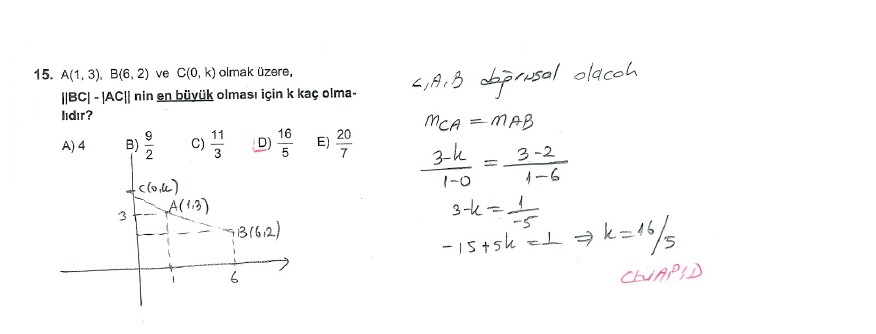 15. A(1, 3), B(6, 2) ve C(0, k) olmak üzere,
||BC| - |AC|| nin en büyük olması için k kaç olma-
lıdır?
A) 4 B) 9/2 C) 11/3 D) 16/5 E) 20/7
C(0,k)
A(1,3)
3
B(6,2)
1 6
C, A, B doğrusal olacak
mCA = mAB
3-k/1-0 = 3-2/1-6
3-k = 1/-5
-15+5k = 1 ⇒ k = 16/5
CEVAP: D